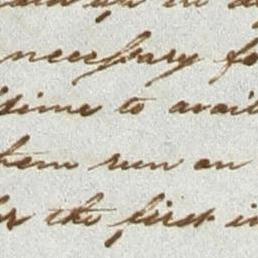 up in
necessary fo
time to avail
them run on
the first in